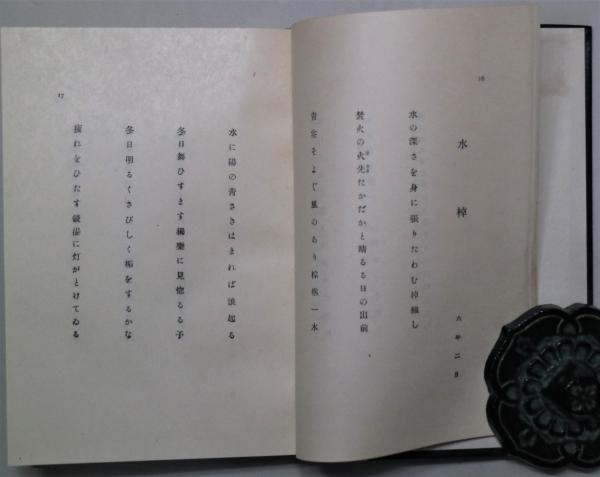 16
水棹
六年二月
水の深さを身に張りたわむ棹細し
焚火の火先たかだかと晴るる日の出前
青空そよぐ風のあり棕梠一木
水に陽の青ささはまれば浪起る
冬日舞ひすます獨樂に見惚るる子
冬日明るくさびしく垢をするかな
疲れをひたす湯に灯がとけてゐる
17